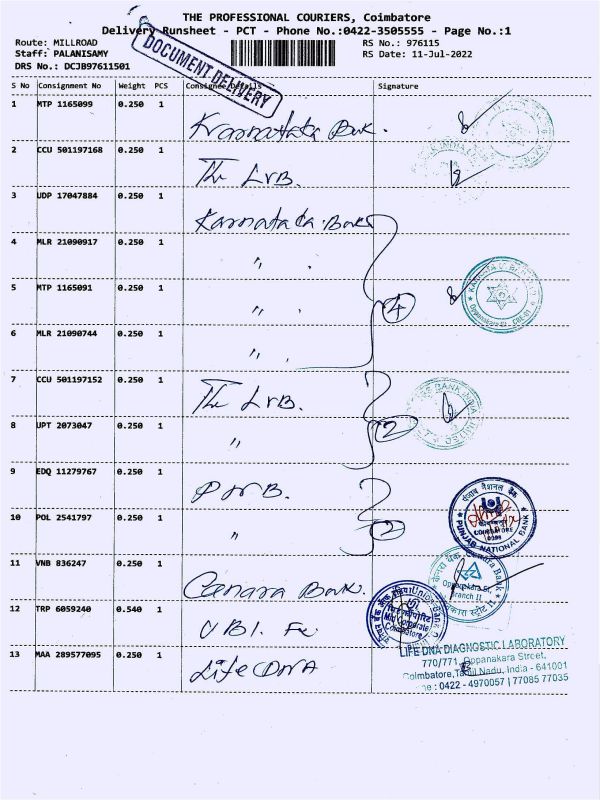 THE PROFESSIONAL COURIERS, Coimbatore
Delivery Runsheet - PCT - Phone No.:0422-3505555 - Page No.:1
Route: MILLROAD
Staff: PALANISAMY
DRS No.: DCJB97611501
RS No.: 976115
RS Date: 11-Jul-2022
DOCUMENT DELIVERY
S No Consignment No Weight PCS Consignee Details Signature
1 MTP 1165099 0.250 1 Karnataka Bank.
2 CCU 501197168 0.250 1 The LVB.
3 UDP 17047884 0.250 1 Karnataka Bank
4 MLR 21090917 0.250 1 "
5 MTP 1165091 0.250 1 "
6 MLR 21090744 0.250 1 "
4
7 CCU 501197152 0.250 1 The LVB.
8 UPT 2073047 0.250 1 "
2
9 EDQ 11279767 0.250 1 PNB.
10 POL 2541797 0.250 1 "
2
पंजाब नैशनल बैंक
PUNJAB NATIONAL BANK
COIMBATORE
11 VNB 836247 0.250 1 Canara Bank.
Oppanakara St.
Branch II
12 TRP 6059240 0.540 1 UBI.
Mid Corporate
Coimbatore
13 MAA 289577095 0.250 1 Life DNA
LIFE DNA DIAGNOSTIC LABORATORY
770/771, Oppanakara Street,
Coimbatore, Tamil Nadu, India - 641001
: 0422 - 4970057 | 77085 77035